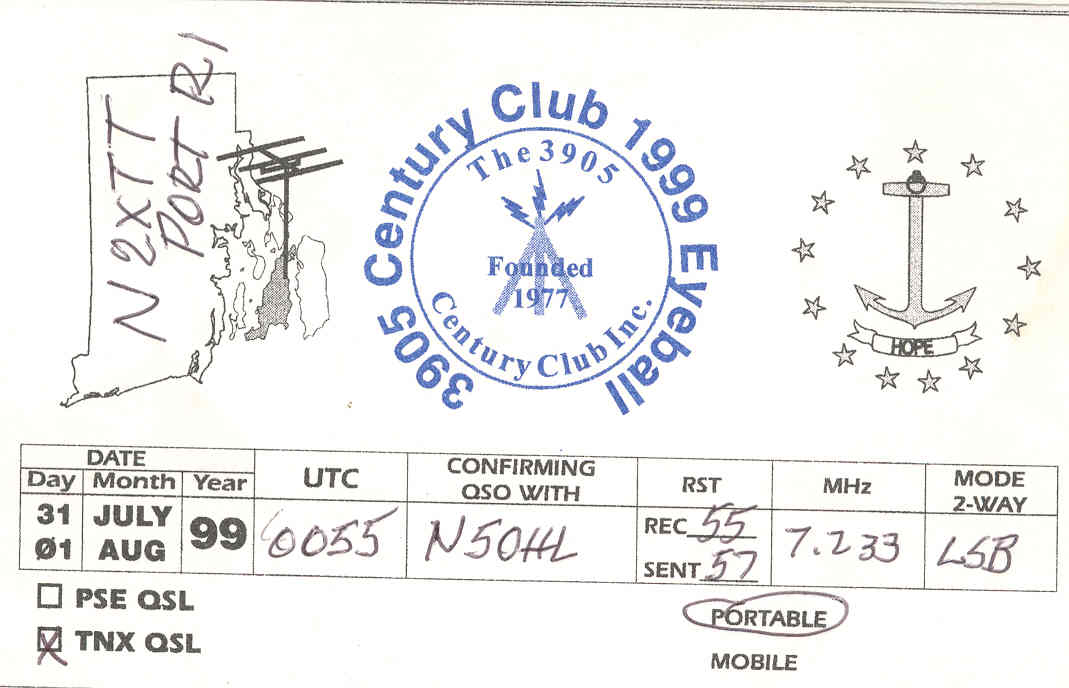 N2XTT
PORT RI
3905 Century Club 1999 Eyeball
The 3905
Founded
1977
Century Club Inc.
HOPE
DATE
Day Month Year
UTC
CONFIRMING
QSO WITH
RST
MHz
MODE
2-WAY
31 JULY
Ø1 AUG
99
0055
N5OHL
REC 55
SENT 57
7.233
LSB
PSE QSL
TNX QSL
PORTABLE
MOBILE